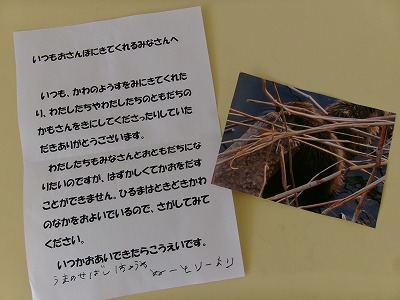 いつもおさんぽにきてくれるみなさんへ
いつも、かわのようすをみにきてくれた
り、わたしたちやわたしたちのともだちの
かもさんをきにしてくださったりしていた
だきありがとうございます。
わたしたちもみなさんとおともだちにな
りたいのですが、はずかしくてかおをだす
ことができません。ひるまはときどきかわ
のなかをおよいでいるので、さがしてみて
ください。
いつかおあいできたらこうえいです。
うまのせばし
ぬーとりーより